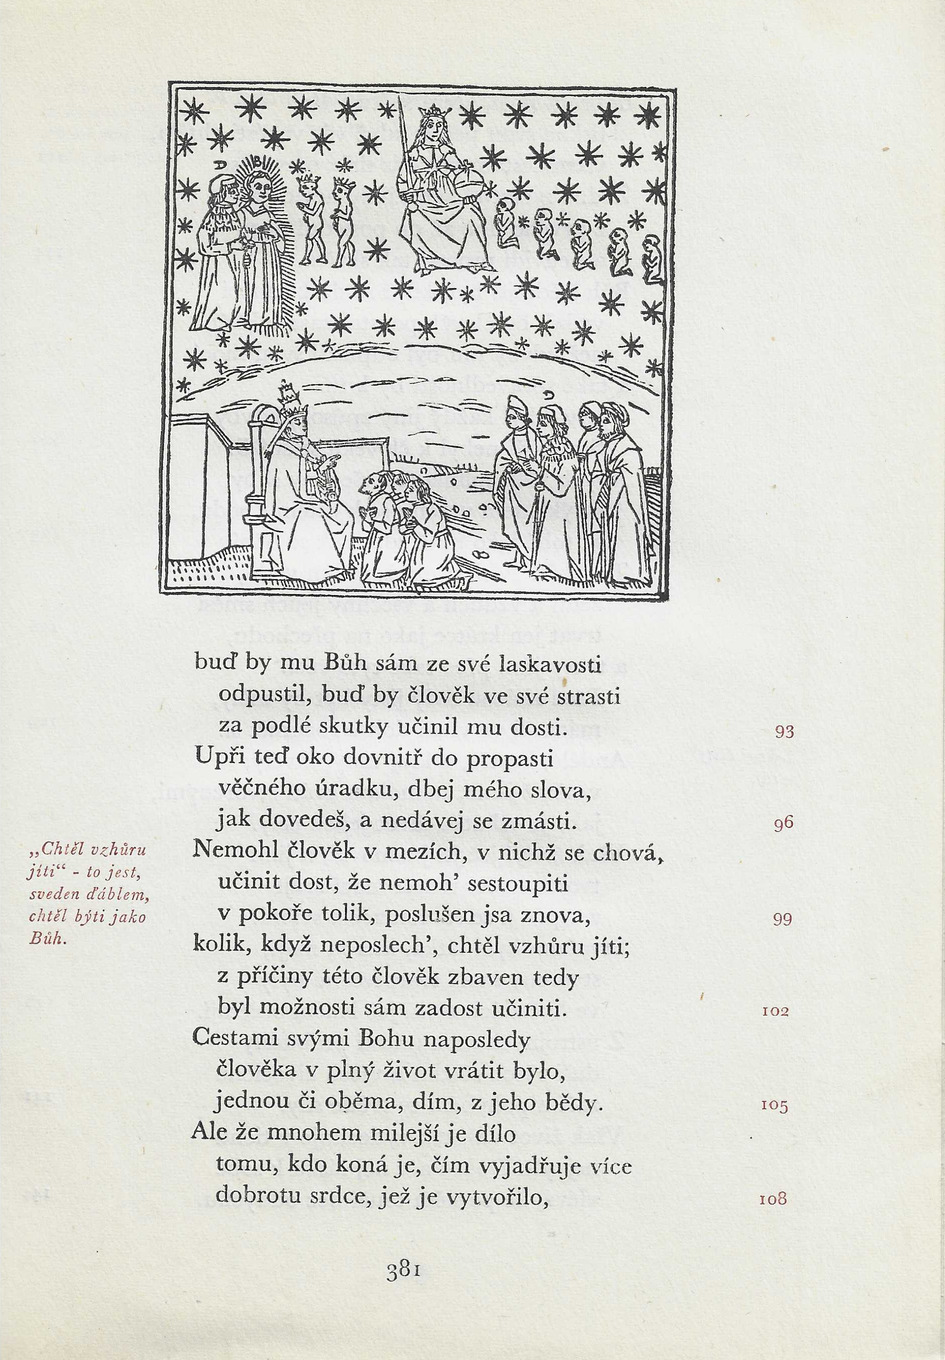 D B
D
buď by mu Bůh sám ze své laskavosti
odpustil, buď by člověk ve své strasti
za podlé skutky učinil mu dosti. 93
Upři teď oko dovnitř do propasti
věčného úradku, dbej mého slova,
jak dovedeš, a nedávej se zmásti. 96
„Chtěl vzhůru
jíti“ - to jest,
sveden ďáblem,
chtěl býti jako
Bůh.
Nemohl člověk v mezích, v nichž se chová,
učinit dost, že nemoh’ sestoupiti
v pokoře tolik, poslušen jsa znova, 99
kolik, když neposlech’, chtěl vzhůru jíti;
z příčiny této člověk zbaven tedy
byl možnosti sám zadost učiniti. 102
Cestami svými Bohu naposledy
člověka v plný život vrátit bylo,
jednou či oběma, dím, z jeho bědy. 105
Ale že mnohem milejší je dílo
tomu, kdo koná je, čím vyjadřuje více
dobrotu srdce, jež je vytvořilo, 108
381